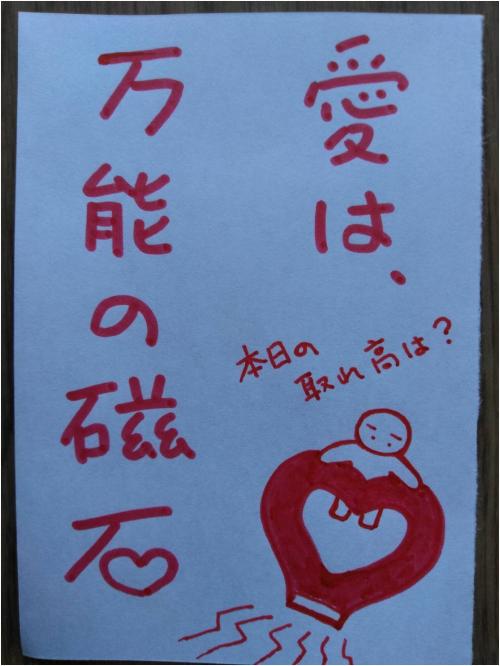 愛は、
万能の磁石
本日の
取れ高は?